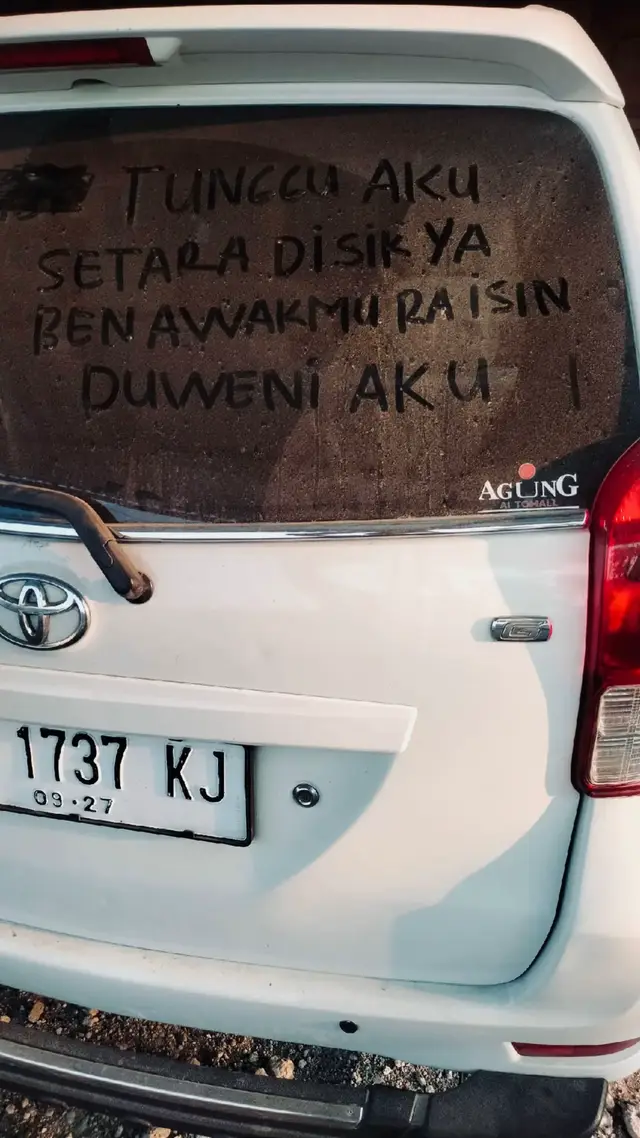 TUNGGU AKU
SETARA DISIK YA
BEN AWAKMU RA ISIN
DUWENI AKU !
AGUNG
AUTOMALL
G
1737 KJ
09·27